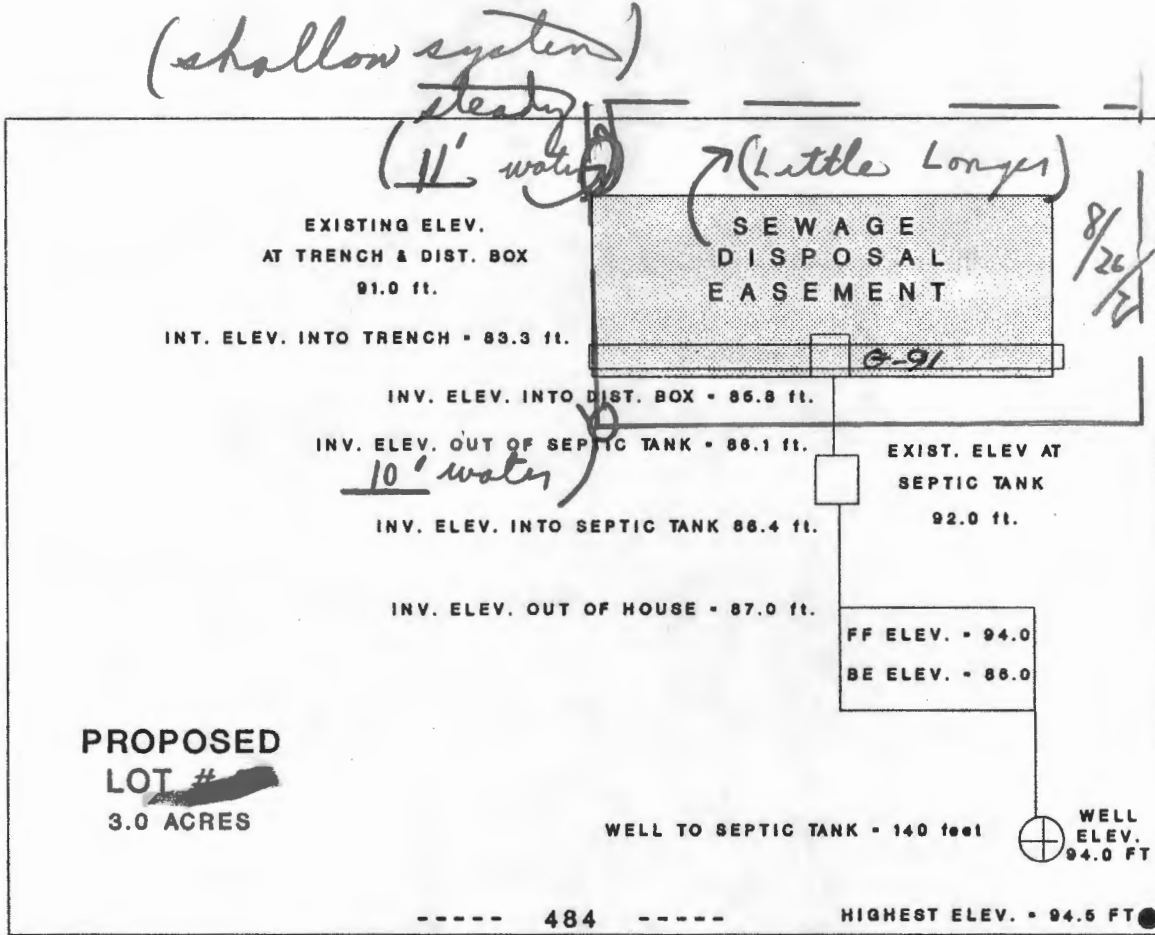 (shallow system)
steady
(11' water
(Little Longer)
EXISTING ELEV.
AT TRENCH & DIST. BOX
91.0 ft.
SEWAGE
DISPOSAL
EASEMENT
8/26/
INT. ELEV. INTO TRENCH = 83.3 ft.
G-91
INV. ELEV. INTO DIST. BOX = 85.8 ft.
INV. ELEV. OUT OF SEPTIC TANK = 86.1 ft.
10' water
EXIST. ELEV AT
SEPTIC TANK
92.0 ft.
INV. ELEV. INTO SEPTIC TANK 86.4 ft.
INV. ELEV. OUT OF HOUSE = 87.0 ft.
FF ELEV. = 94.0
BE ELEV. = 86.0
PROPOSED
LOT #
3.0 ACRES
WELL TO SEPTIC TANK = 140 feet
WELL
ELEV.
94.0 FT
----- 484 -----
HIGHEST ELEV. = 94.5 FT